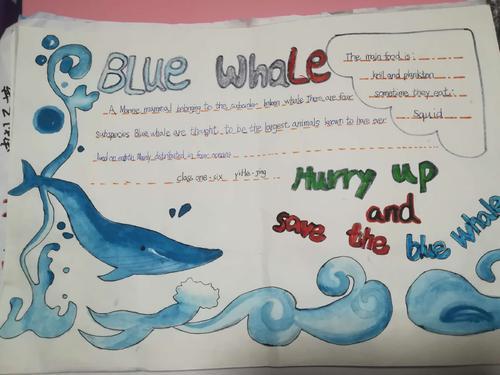 BLUE WhaLe
The main food is:
krill and plankton
sometime they eat:
squid
A Marine mammal belonging to the suborder baleen whale There are four
subspecies Blue whale are thought to be the largest animals known to have ever
lived on earth Mainly distributed in four oceans
class one-six
Hurry up
and
save the blue whale